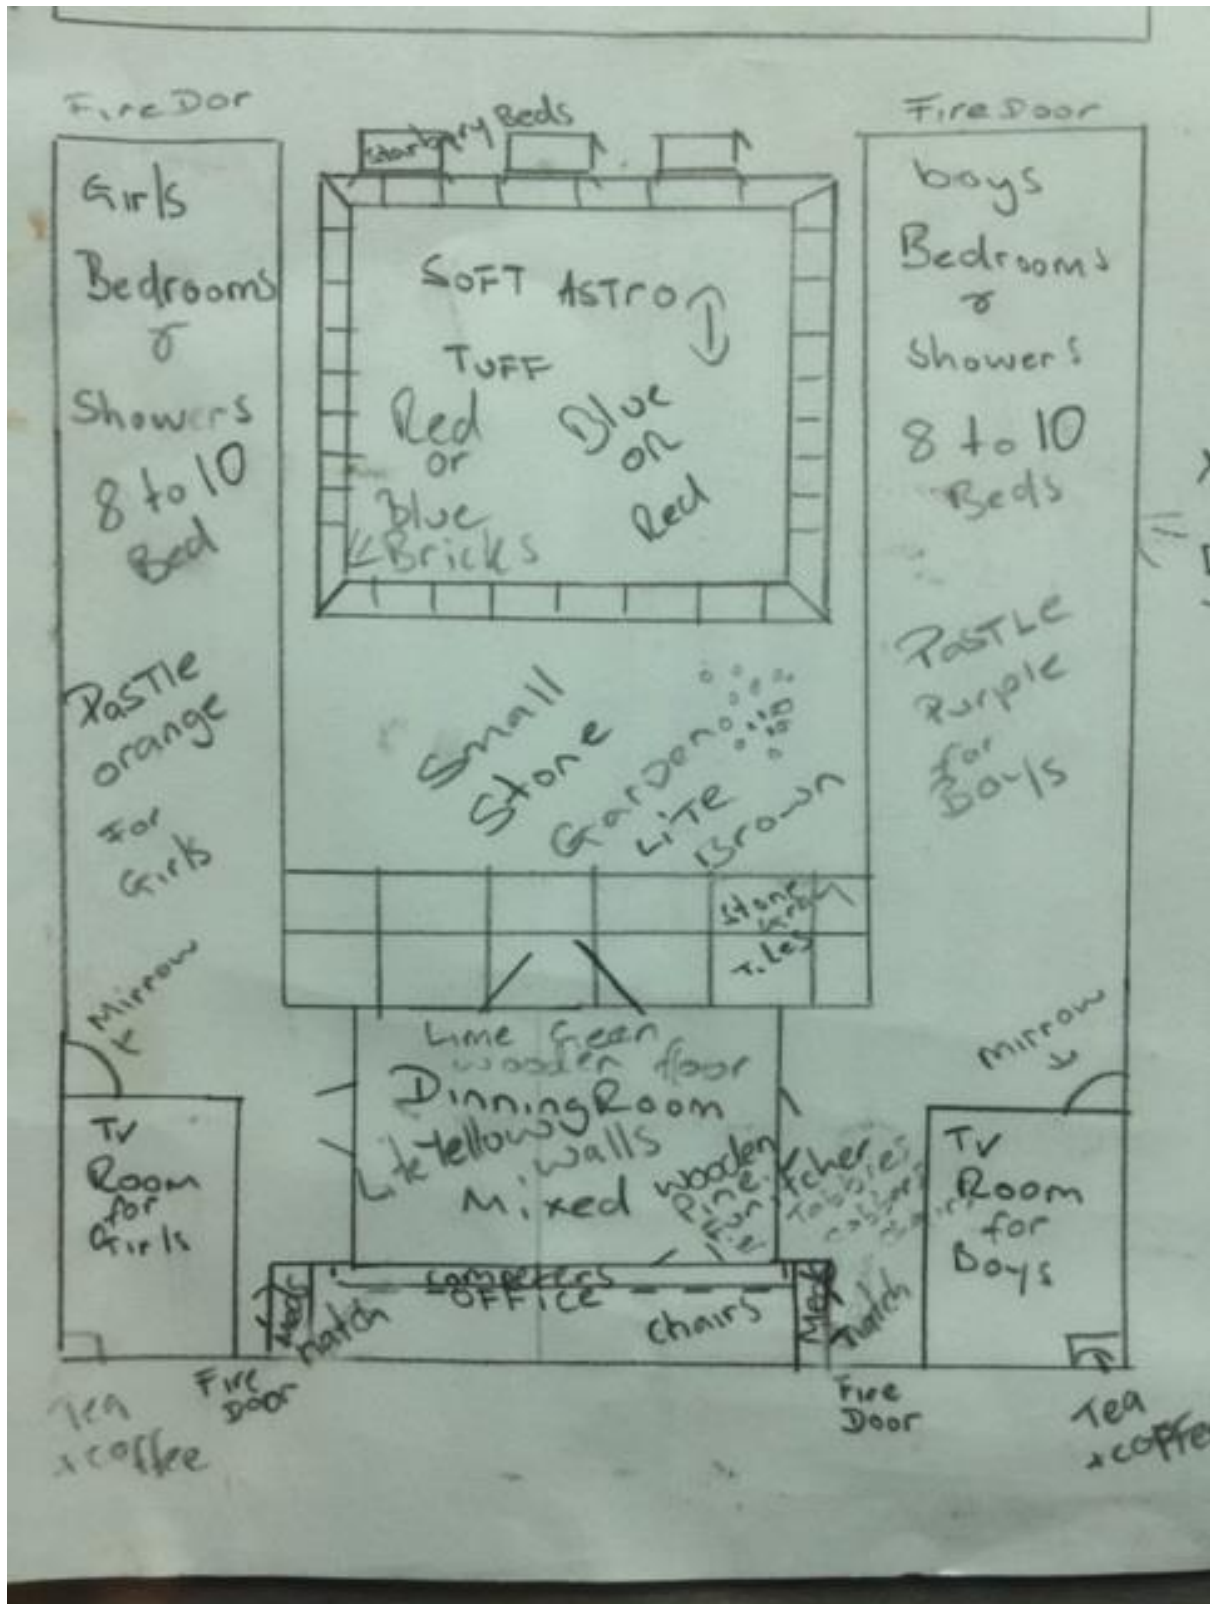 Fire Dor
Girls
Bedrooms
&
Showers
8 to 10
Bed
Pastle
orange
For
Girls
Mirrow
TV
Room
for
Girls
Tea
+ coffee
Fire
Door
Beds
SOFT ASTRO
TUFF
Red
or
Blue
Bricks
Blue
or
Red
Small
Stone
Garden
Lite
Brown
Stone
Gray
Tiles
Lime Geen
wooden floor
Dinning Room
Lite Yellowy
walls
Mixed
wooden
Pine
computers
OFFICE
chairs
Meds
hatch
Meds
hatch
Fire
Door
Fire Door
boys
Bedrooms
&
Showers
8 to 10
Beds
Pastle
Purple
for
Boys
Mirrow
TV
Room
for
Boys
Tea
+ coffee